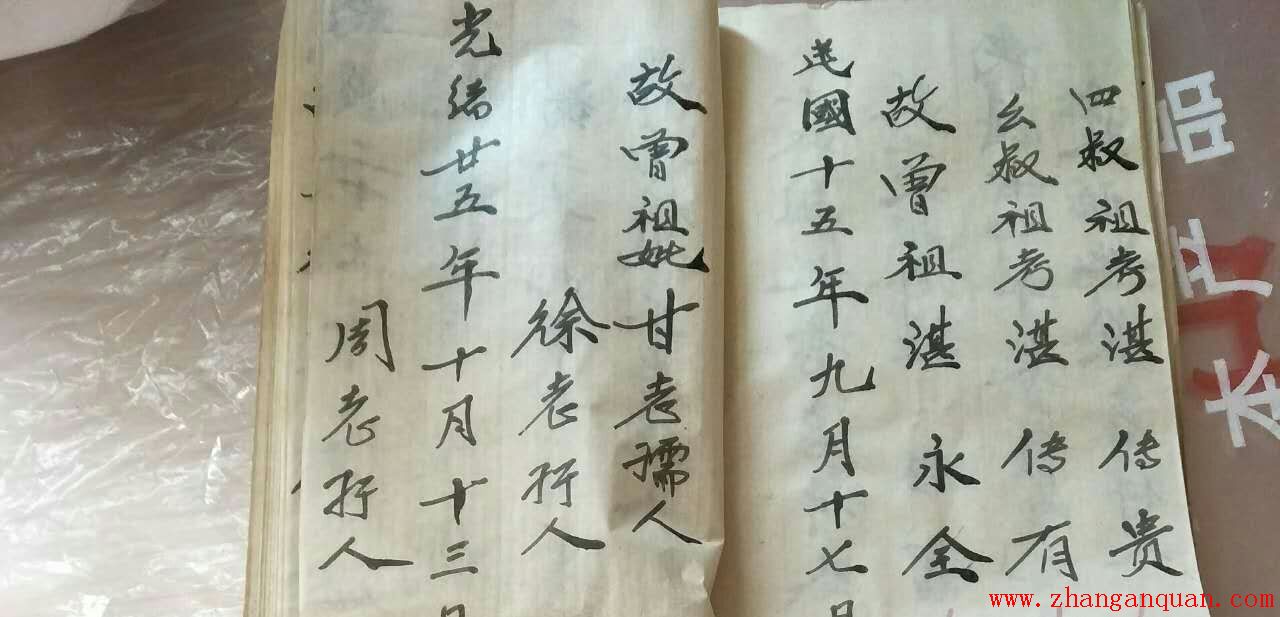 四叔祖考湛传贵
么叔祖考湛传有
故曾祖湛永全
民國十五年九月十七日
故曾祖妣甘老孺人
徐老孺人
光绪廿五年十月十三日
周老孺人
本产品
www.zhanganquan.com